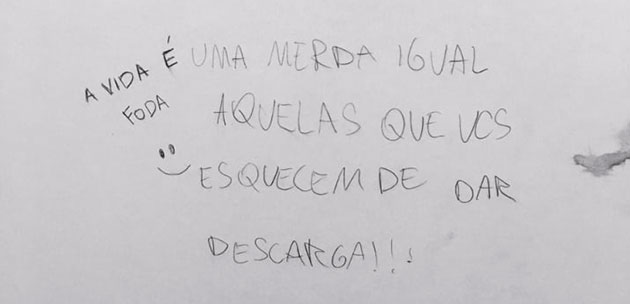 A VIDA É UMA MERDA IGUAL
FODA
AQUELAS QUE VCS
ESQUECEM DE DAR
DESCARGA!!!